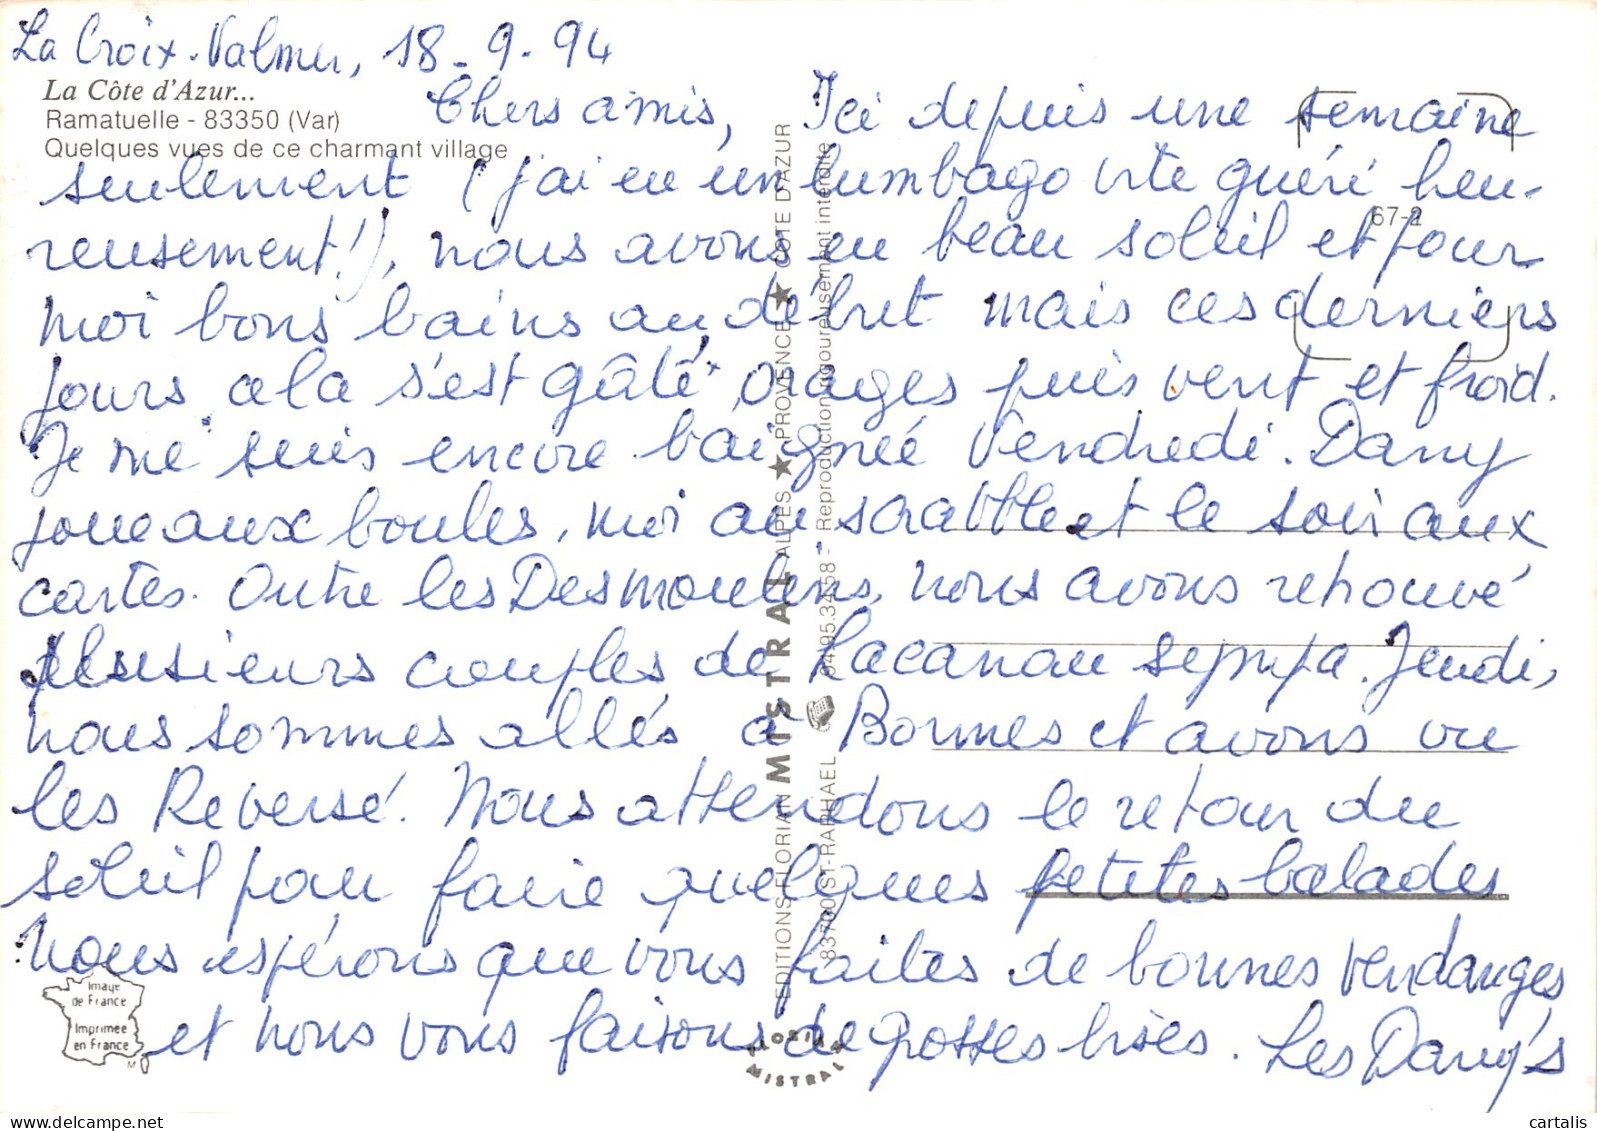 La Croix-Valmer, 18-9-94
La Côte d'Azur...
Ramatuelle - 83350 (Var)
Quelques vues de ce charmant village
Chers amis, Ici depuis une semaine
seulement (j'ai eu un lumbago vite guéri heu-
reusement!), nous avons eu beau soleil et pour
moi bons bains au début mais ces derniers
jours cela s'est gâté, orages puis vent et froid.
Je me suis encore baignée Vendredi. Dany
joue aux boules, moi au scrabble et le soir aux
cartes. Outre les Desmoulins, nous avons retrouvé
plusieurs couples de Lacanau sympa. Jeudi,
nous sommes allés à Bormes et avons vu
les Reversé. Nous attendons le retour du
soleil pour faire quelques petites balades
Nous espérons que vous faites de bonnes vendanges
et nous vous faisons de grosses bises. Les Dany's
67-2
EDITIONS FLORIAN MISTRAL ALPES ★ PROVENCE ★ COTE D'AZUR
83700 ST-RAPHAEL 94.95.34.58 - Reproduction rigoureusement interdite
Image
de France
Imprimée
en France
FLORIAN
MISTRAL
cartalis